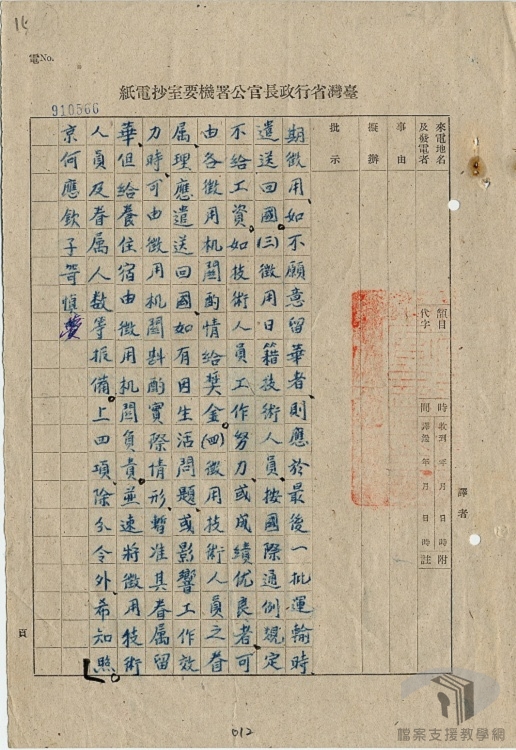 電No.
紙電抄室要機署公官長政行省灣臺
910566
來電地名
及發電者
事由
擬辦
批示
類目
代字
時間
收到 年 月 日 時
譯發 年 月 日 時
附註
譯者
期徵用，如不願意留華者，則應於最後一批運輸時
遣送回國。(三)徵用日籍技術人員，按國際通例規定
不給工資，如技術人員工作努力或成績优良者，可
由各徵用机関酌情給獎金。(四)徵用技術人員之眷
属，理應遣送回國，如有因生活問題，或影響工作效
力時，可由徵用机関斟酌實際情形，暫准其眷属留
華，但給養住宿由徵用机関負責，並速將徵用技術
人員及眷属人数等报備。上四項，除分令外，希知照。
京何應欽子
頁
012
檔案支援教學網